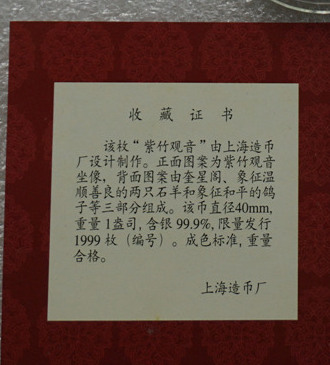 收藏证书
该枚“紫竹观音”由上海造币
厂设计制作。正面图案为紫竹观音
坐像，背面图案由奎星阁、象征温
顺善良的两只石羊和象征和平的鸽
子等三部分组成。该币直径40mm,
重量1盎司,含银99.9%,限量发行
1999枚(编号)。成色标准,重量
合格。
上海造币厂